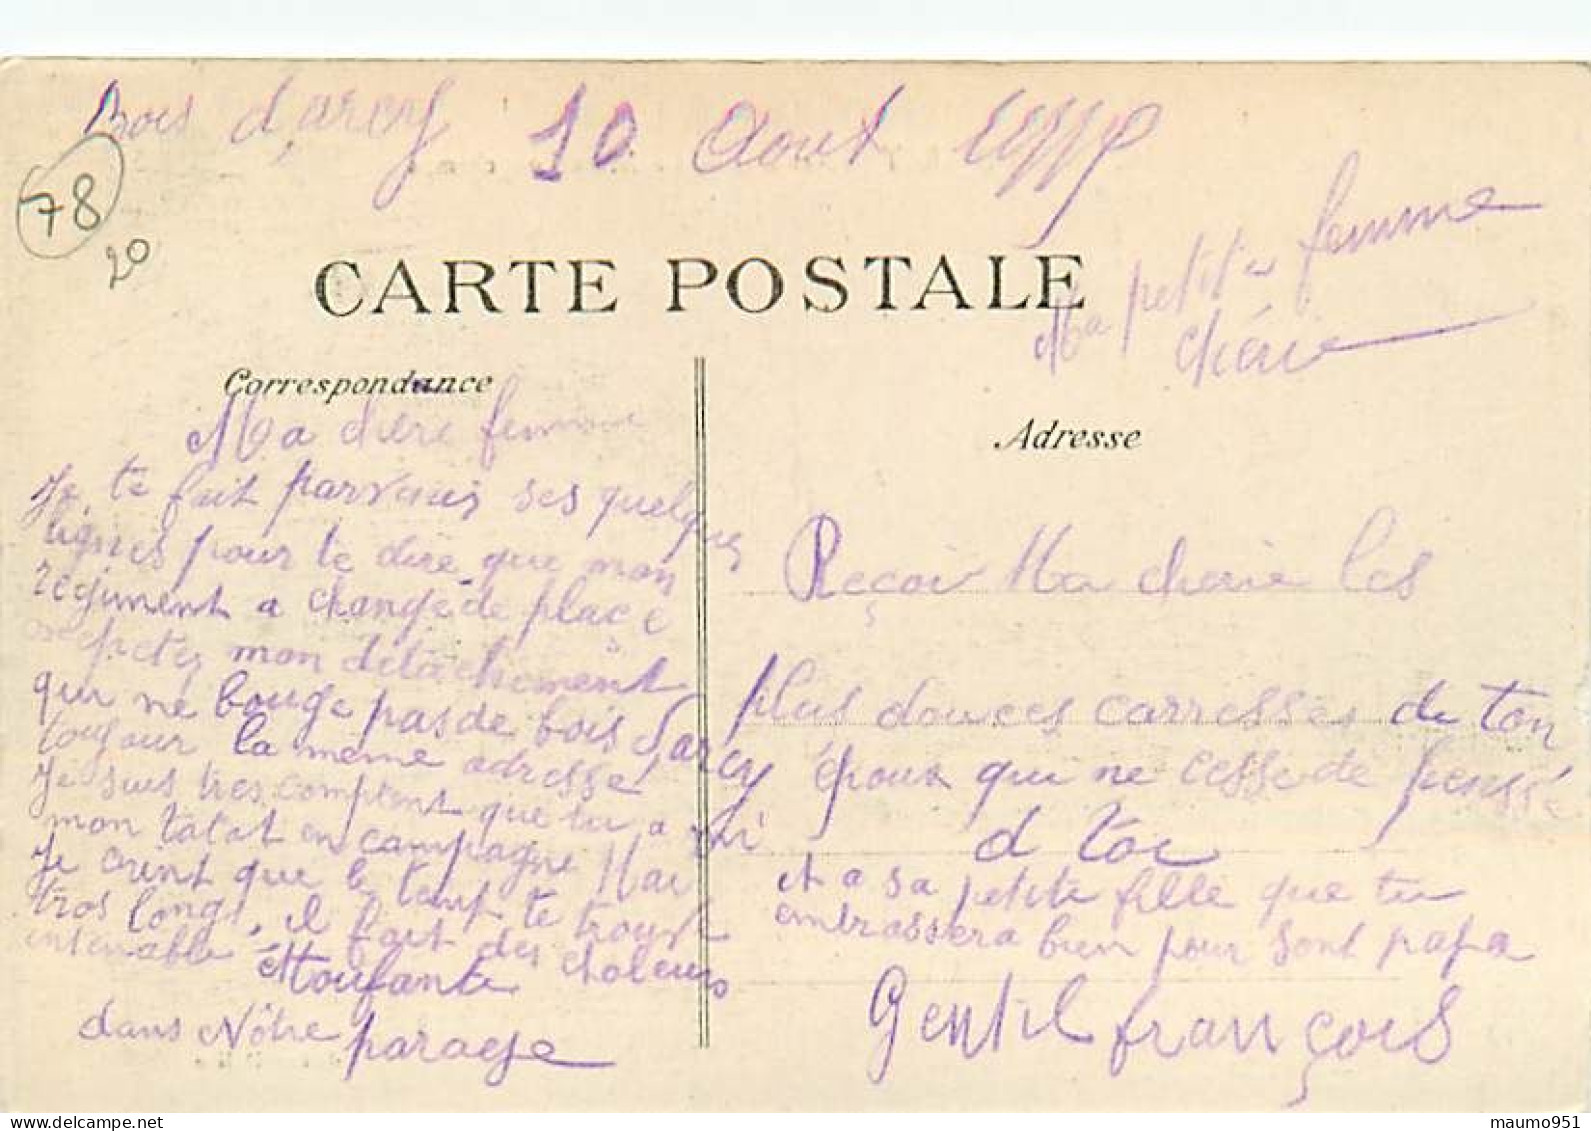 Bois d'arcy 10 Aout
78
20
Ma petite femme
chérie
CARTE POSTALE
Correspondance
Adresse
Ma chere femme
Je te fait parvenir ses quelques
lignes pour te dire que mon
régiment a changé de place
mon détachement
qui ne bouge pas de bois d'arcy
toujour la même adresse
Je suis tres comptent que tu a
mon tatat en campagne Mai
Je crint que le temp te
tros longt, il fait des chaleurs
intenable étoufante
dans Nôtre parage
Reçoi Ma cherie les
plus douces carresses de ton
époux qui ne cesse de pensé
a toi
et a sa petite fille que tu
embrassera bien pour sont papa
Gentil françois
maumo951